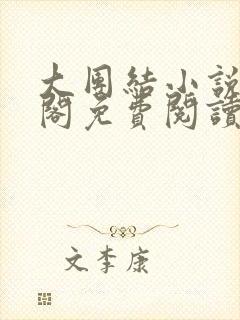 大團結小說
閣免費閱讀
文李康